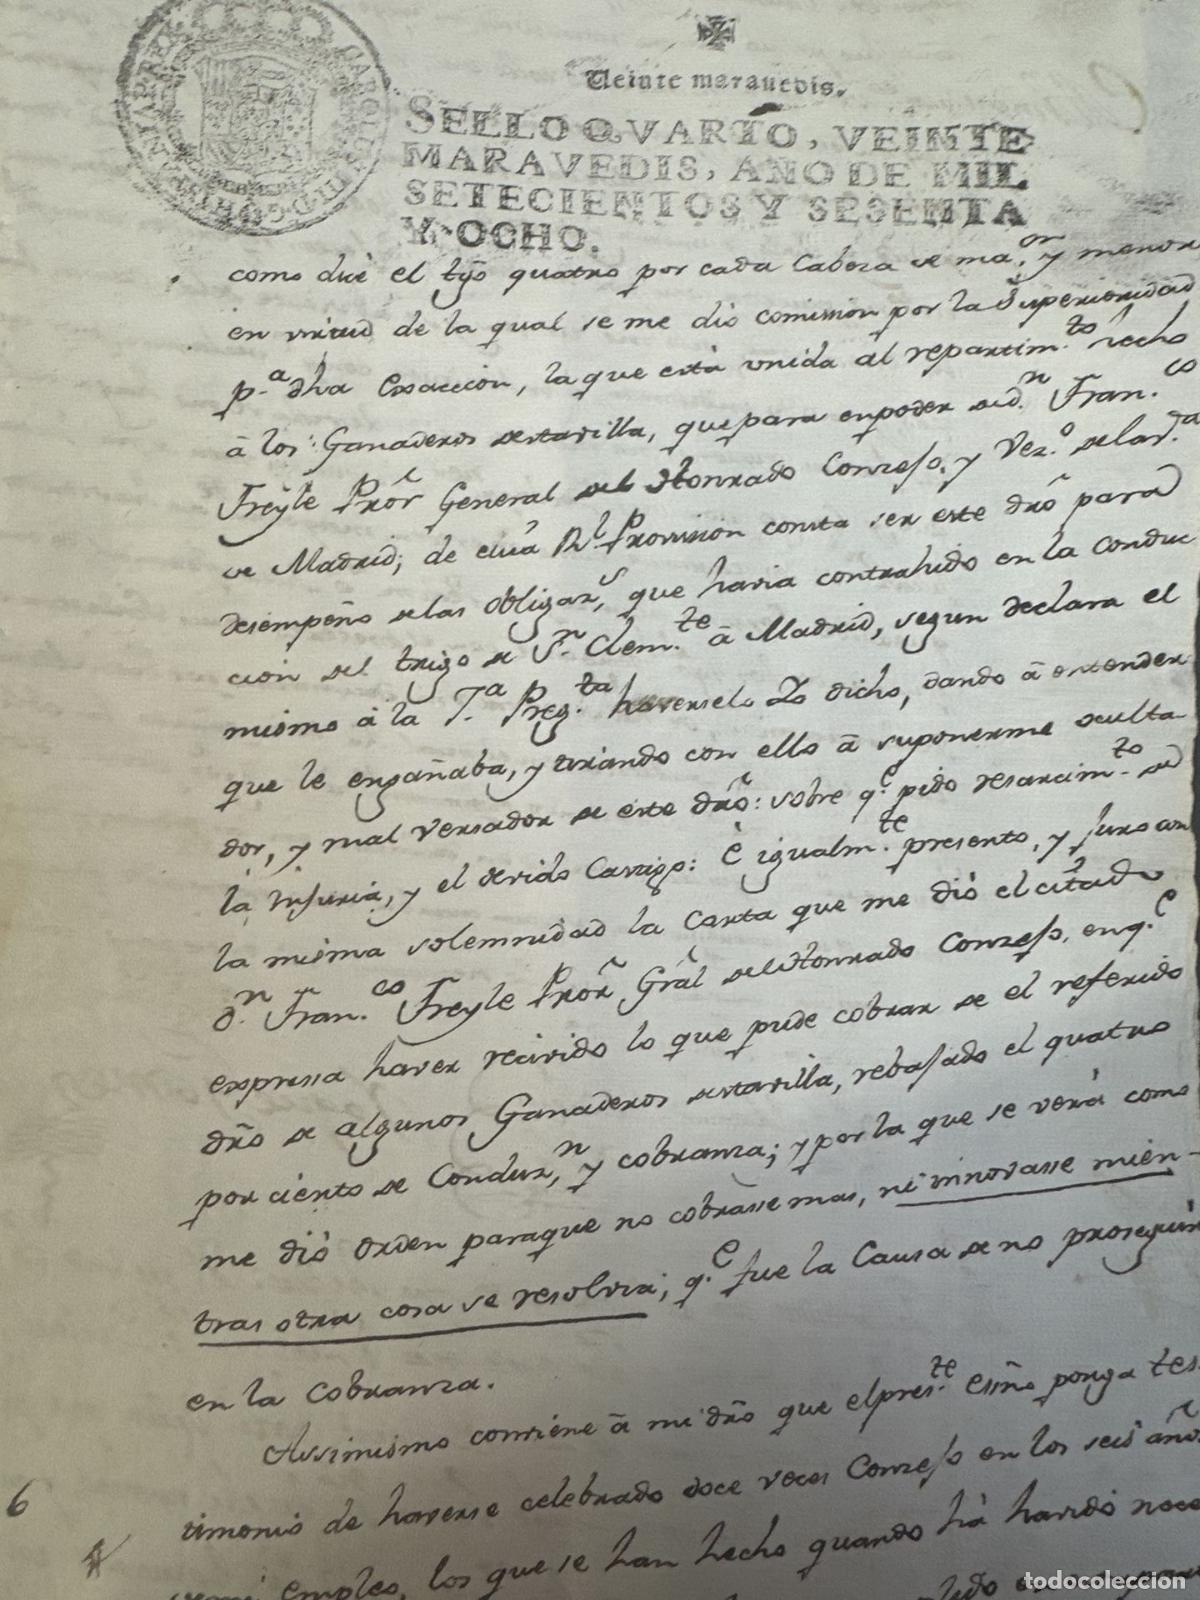 Veinte marauedis.
SELLO QVARTO, VEINTE
MARAVEDIS, AÑO DE MIL
SETECIENTOS Y SESENTA
Y OCHO.
como dué el tpo quatro por cada Cabeza de ma.or y menor
en virtud de la qual se me dio comission por la Superioridad
p.a dha Exsaccion, la que está vnida al repartim.to hecho
â los Ganaderos destavilla, que para en poder de d.n Fran.co
Freyle Prõr General del Honrado Conzejo, y Vez.o de la v.a
de Madrid; de cuia Rl Provision consta ser este drõ para
desempeño de las obligaz.s, que havia contrahido en la conduc
cion del trigo de Sn. Clem.te â Madrid, segun declara el
mismo â la 7.a Preg.ta haverselo Yo dicho, dando â entender
que le engañaba, y tirando con ello â suponerme oculta
dor, y mal versador de este drõ: sobre q.e pido resarcim.to de
la injuria, y el devido Castigo: E igualm.te presento, y juro con
la misma solemnidad la Carta que me dió el citado
d.n Fran.co Freyle Prõr Grãl del Honrado Conzejo, en q.e
expressa haver recivido lo que pude cobrar de el referido
drõ de algunos Ganaderos destavilla, rebajado el quatro
por ciento de Conduz.n y cobranza; y por la que se verá como
me dió orden paraque no cobrasse mas, ni innovasse mien-
tras otra cosa se resolvia; q.e fue la Causa de no proseguir
en la Cobranza.
Assimismo conviene â mi drõ que el pres.te Essño ponga tes
timonio de haverse celebrado doce veces Conzejo en los seis años
empleo, los que se han hecho quando hà havido nece
6
todocoleccion